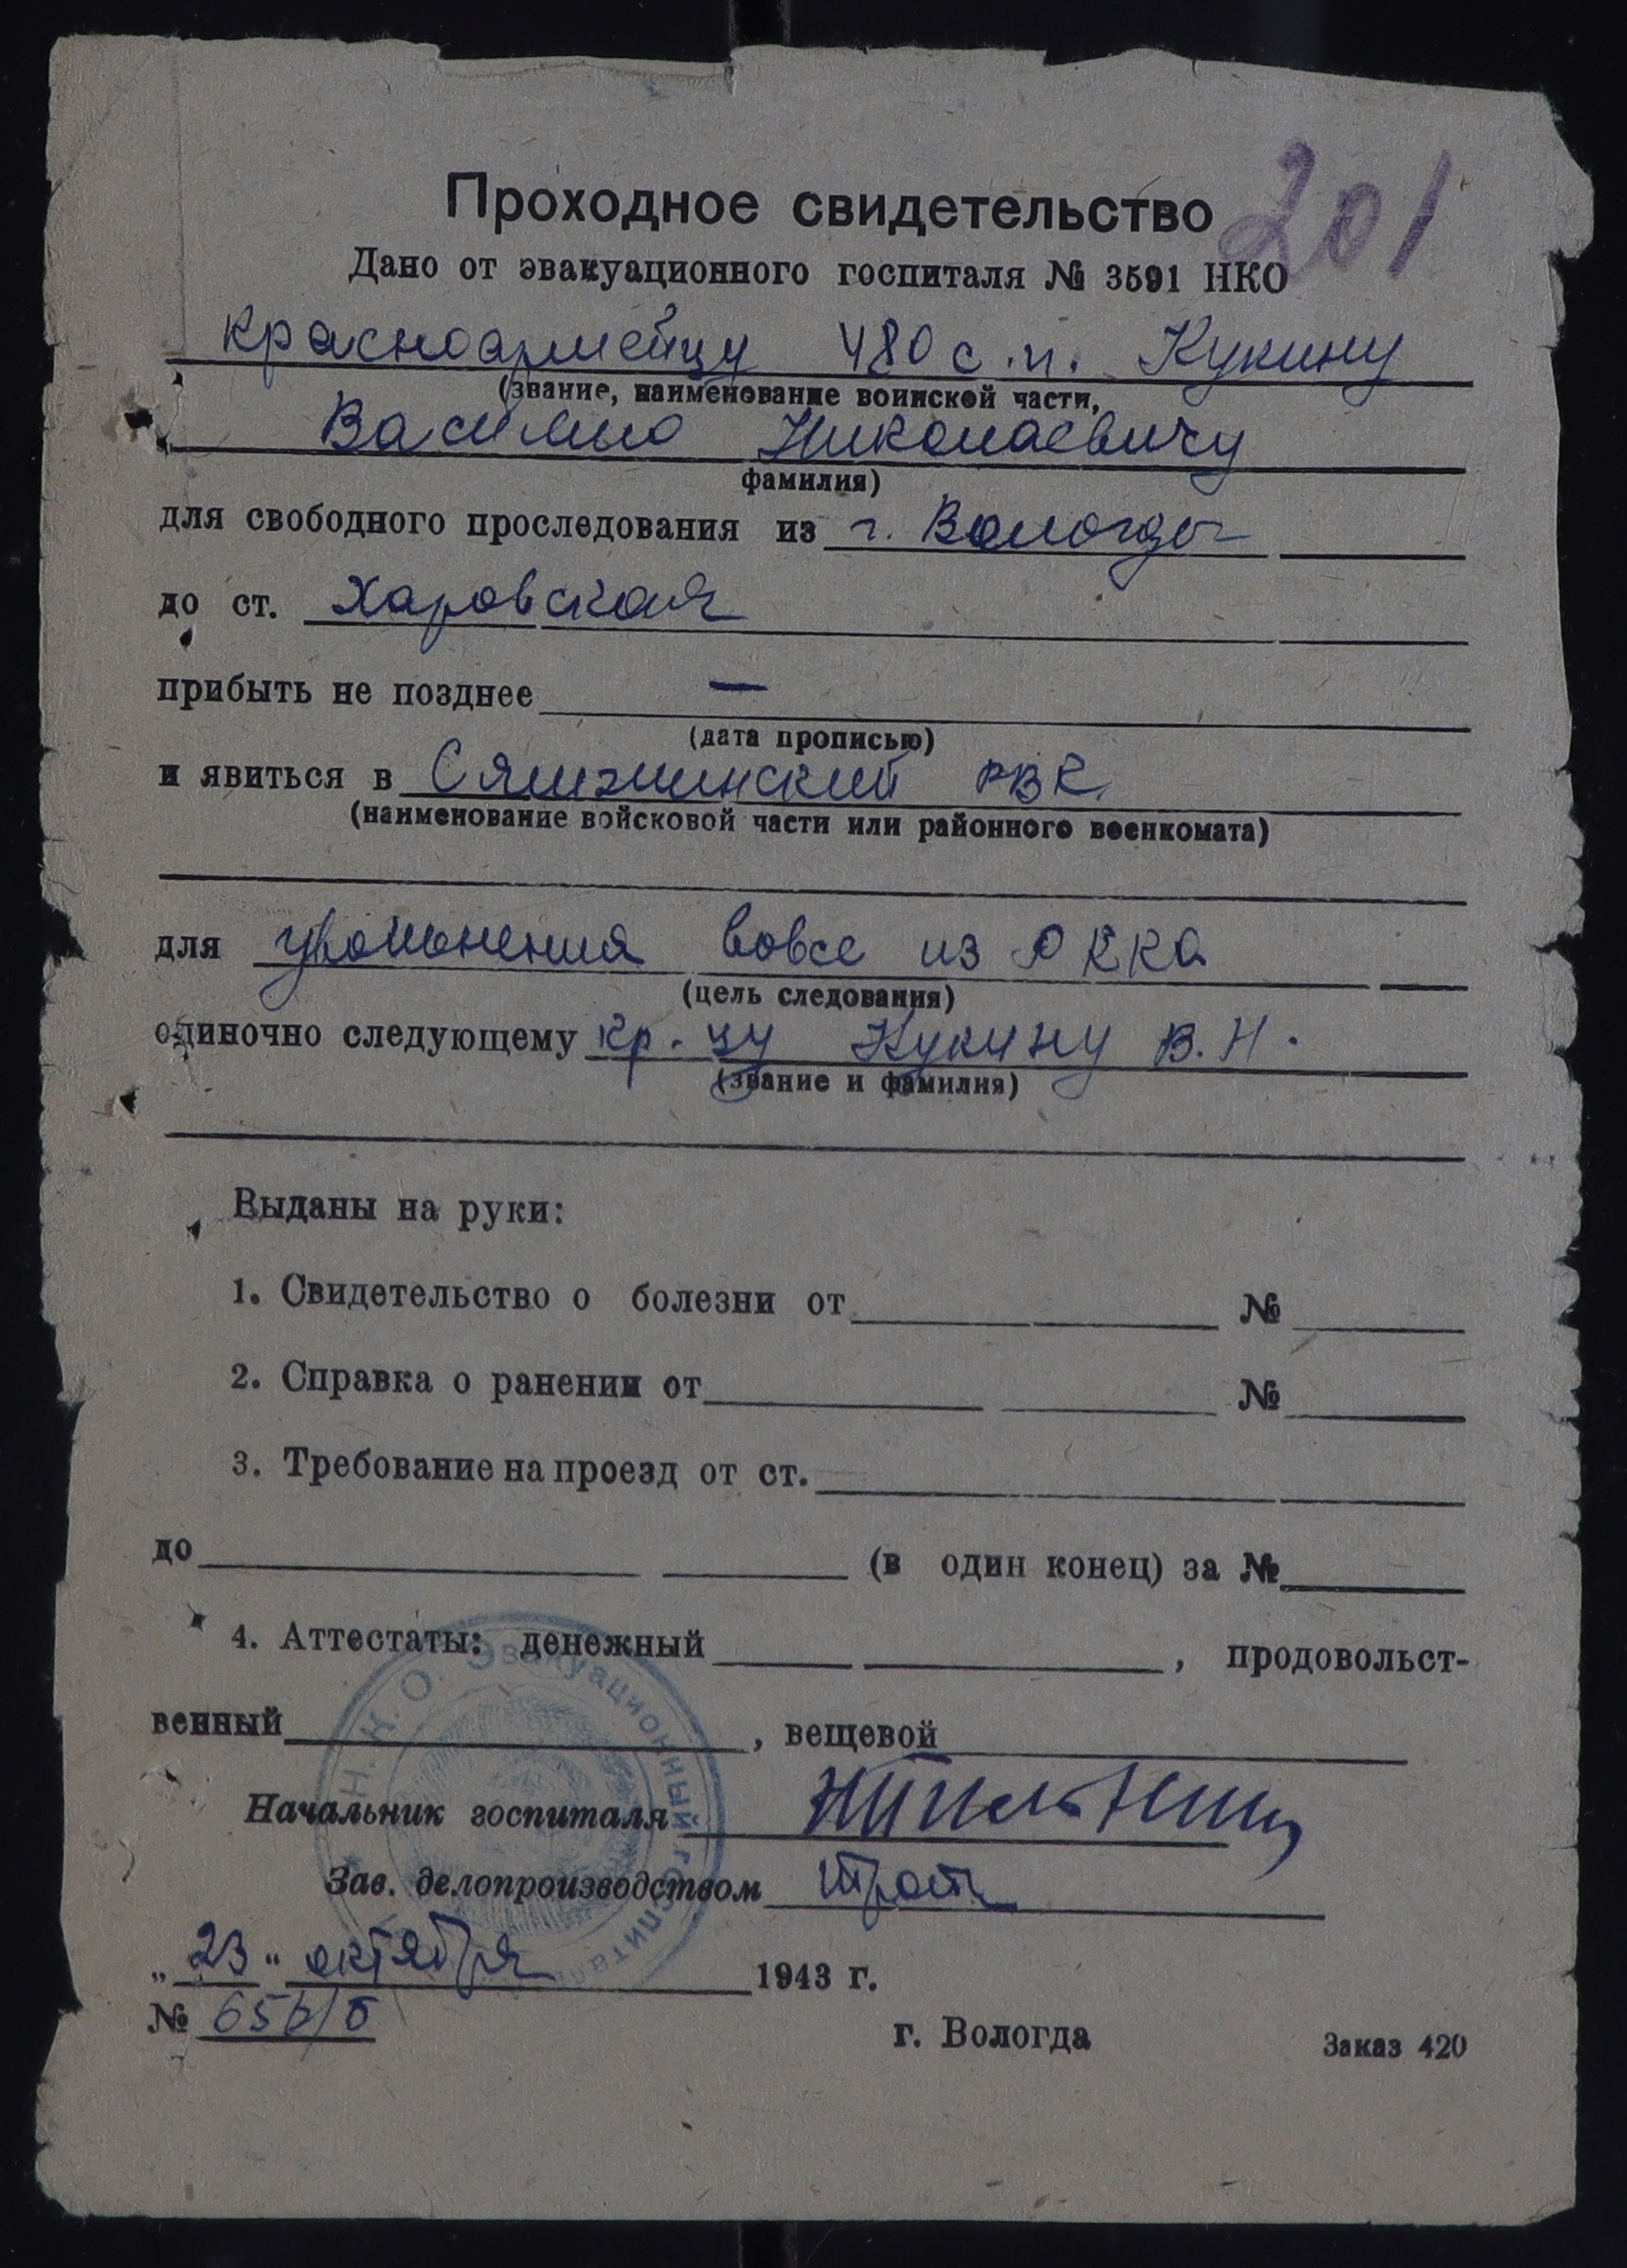 201
Проходное свидетельство
Дано от эвакуационного госпиталя № 3591 НКО
красноармейцу 480 с.п. Кукину
(звание, наименование воинской части,
Василию Николаевичу
фамилия)
для свободного проследования из г. Вологды
до ст. Харовская
прибыть не позднее —
(дата прописью)
и явиться в Сямженский РВК
(наименование войсковой части или районного военкомата)
для увольнения вовсе из РККА
(цель следования)
одиночно следующему кр-цу Кукину В.Н.
(звание и фамилия)
Выданы на руки:
1. Свидетельство о болезни от №
2. Справка о ранении от №
3. Требование на проезд от ст.
до (в один конец) за №
4. Аттестаты: денежный , продовольст-
венный , вещевой
Н.К.О. Эвакуационный госпита
Начальник госпиталя
Зав. делопроизводством
„23" октября 1943 г.
№ 656/б
г. Вологда Заказ 420